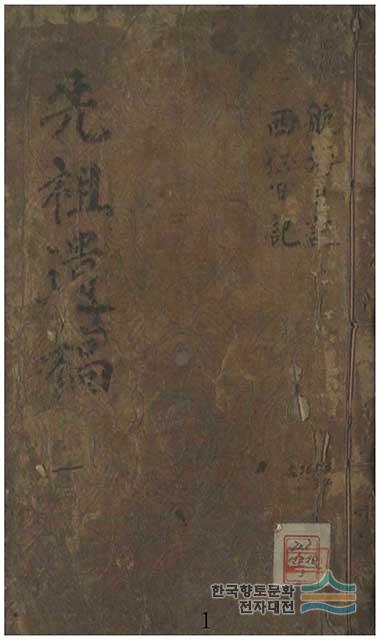 航海日記
西 日記
先祖遺稿 一
한국향토문화
전자대전
1